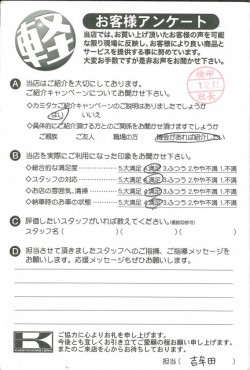 軽
お客様アンケート
当店では、お買い上げ頂いたお客様の声を可能
な限り現場に反映し、お客様により良い商品と
サービスを提供する事に努めています。
大変お手数ですが是非お声をお聞かせ下さい。
A 当店はご紹介を大切にしております。
ご紹介キャンペーンについてお聞かせ下さい。
◇カミタケご紹介キャンペーンのご説明はありましたでしょうか
はい いいえ
◇具体的にご紹介頂ける方とのご関係をお聞かせ頂けますでしょうか
ご親族 ご友人 職場の方 機会があれば紹介したい
B 当店を実際にご利用になった印象をお聞かせ下さい。
◇総合的な満足度 5.大満足 4.満足 3.ふつう 2.やや不満 1.不満
◇スタッフの対応 5.大満足 4.満足 3.ふつう 2.やや不満 1.不満
◇お店の雰囲気、清掃 5.大満足 4.満足 3.ふつう 2.やや不満 1.不満
◇納車時のお車の状態 5.大満足 4.満足 3.ふつう 2.やや不満 1.不満
C 評価したいスタッフがいれば教えてください。(複数回答可)
スタッフ名( )( )( )
D 担当させて頂きましたスタッフへのご指摘、ご指導メッセージを
お願いします。応援メッセージもぜひお願いします。
K
ご協力に心よりお礼を申し上げます。
今後とも宜しくお引き立てご愛顧の程お願い申し上げます。
またのご来店を心からお待ちしております。
担当( 吉年田 )